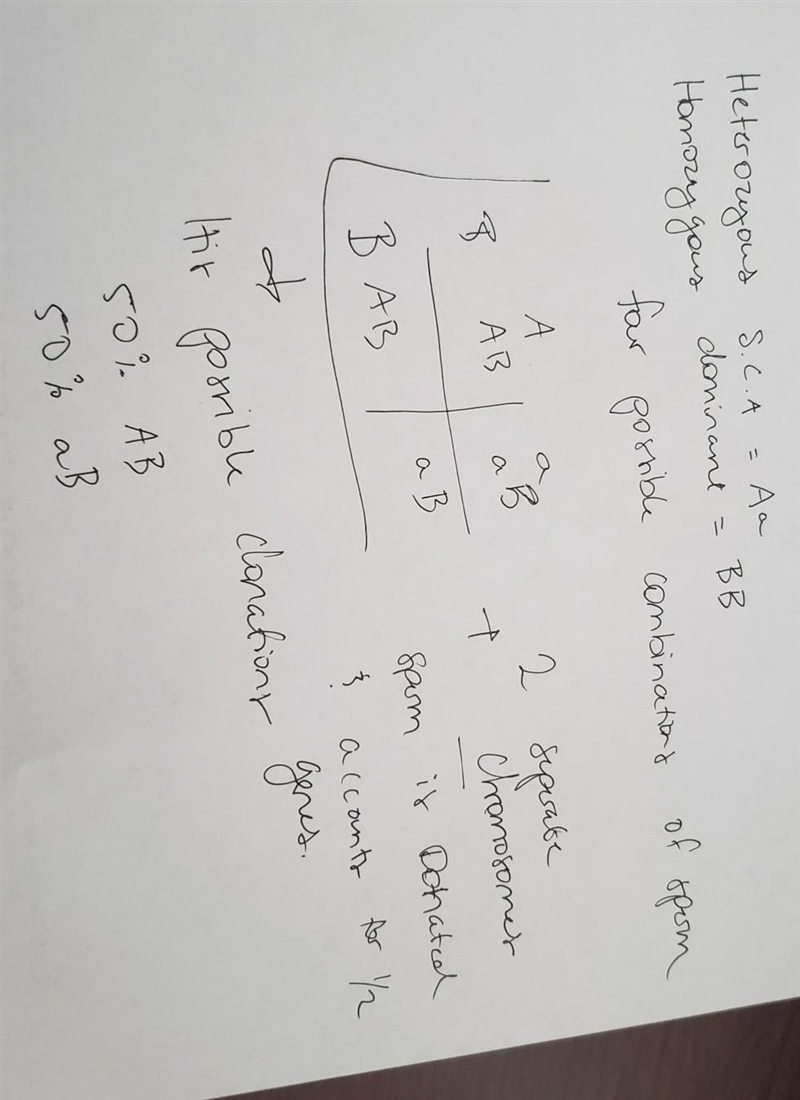 Heterozyous S.C.A = Aa
Homozygous dominant = BB
for possible combinations of sperm
A a
B AB aB
B AB aB
+ 2 seperate
chromosomes
sperm is Donated
& accounts for 1/2
genes.
His possible donations
50% AB
50% aB